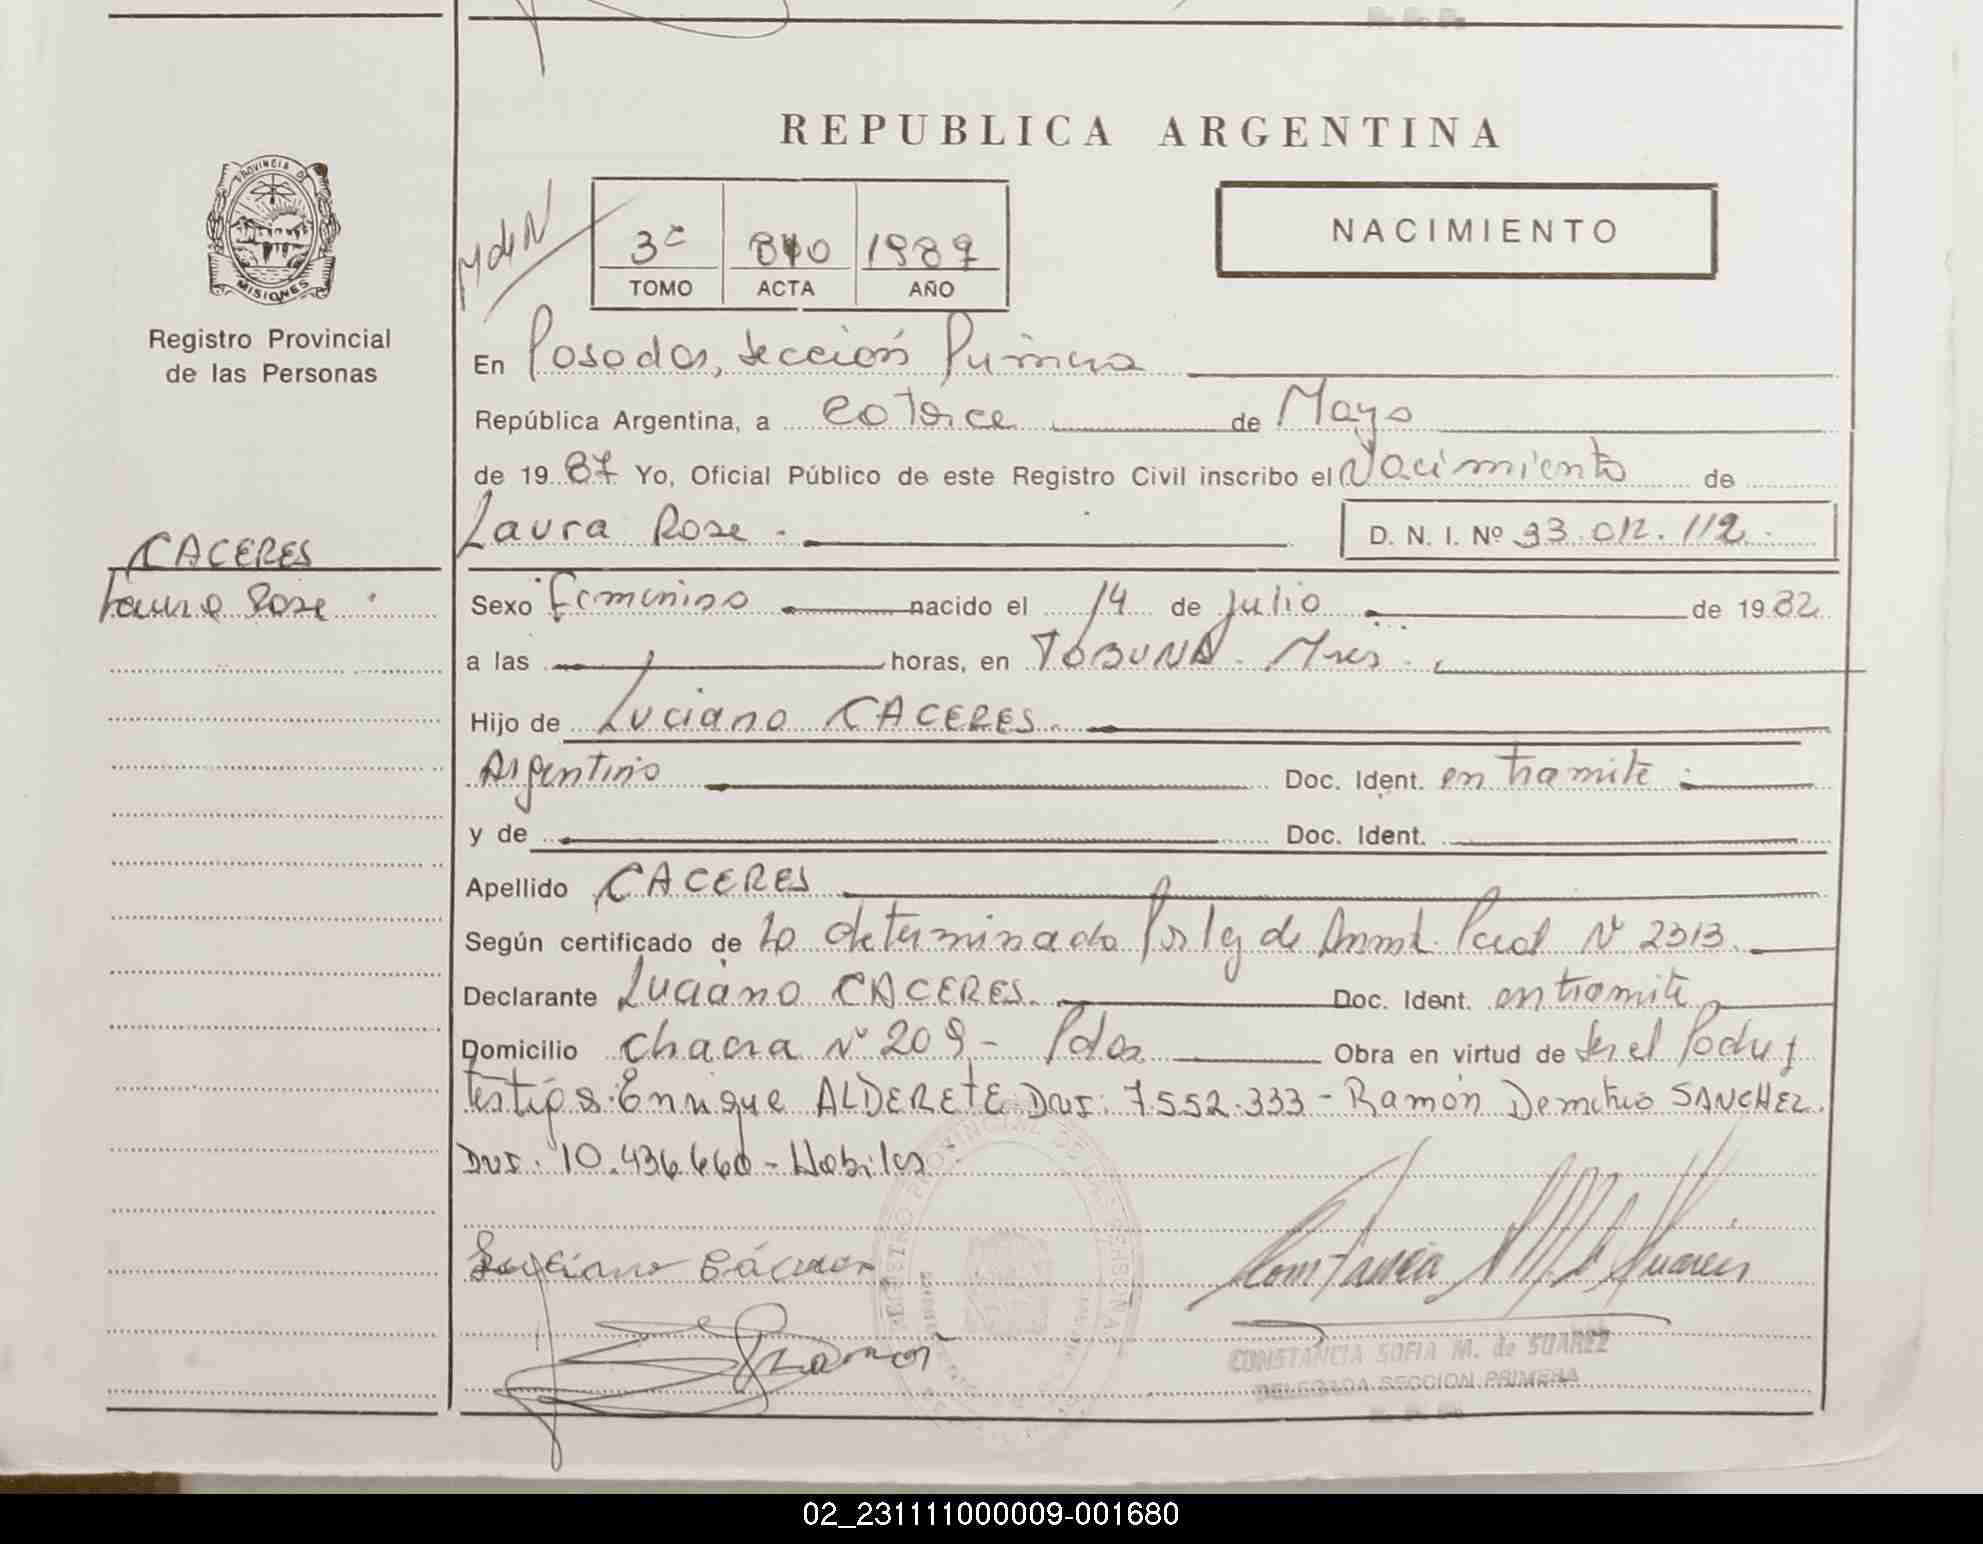 REPUBLICA ARGENTINA
PROVINCIA DE
MISIONES
Registro Provincial
de las Personas
MdeN
3º 840 1987
TOMO ACTA AÑO
NACIMIENTO
En Posadas, Sección Primera
República Argentina, a catorce de Mayo
de 1987 Yo, Oficial Público de este Registro Civil inscribo el Nacimiento de
Laura Rose. D. N. I. Nº 33.012.112.
CACERES
Laura Rose.
Sexo Femenino nacido el 14 de Julio de 1982
a las horas, en TOBUNA. Mnes.
Hijo de Luciano CACERES.
Argentino Doc. Ident. en tramite
y de Doc. Ident.
Apellido CACERES
Según certificado de lo determinado Por ley de Amnt. Pcial Nº 2313.
Declarante Luciano CACERES. Doc. Ident. en tramite
Domicilio Chacra Nº 209 - Pdas Obra en virtud de Ser el Padre y
testigos: Enrique ALDERETE DNI: 7.552.333 - Ramón Demetrio SANCHEZ.
DNI. 10.436.660 - Habiles
Luciano Cáceres
Ramon
REGISTRO PROVINCIAL DE LAS PERSONAS
CONSTANCIA SOFIA M. de SUAREZ
DELEGADA SECCION PRIMERA
02_231111000009-001680